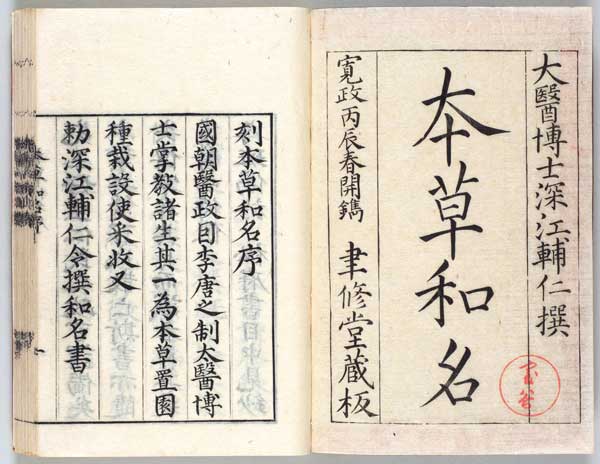 大醫博士深江輔仁撰
本草和名
寛政丙辰春開鐫 聿修堂蔵板
刻本草和名序
國朝醫政因李唐之制太醫博
士掌教諸生其一為本草置園
種栽設使采收又
勅深江輔仁令撰和名書